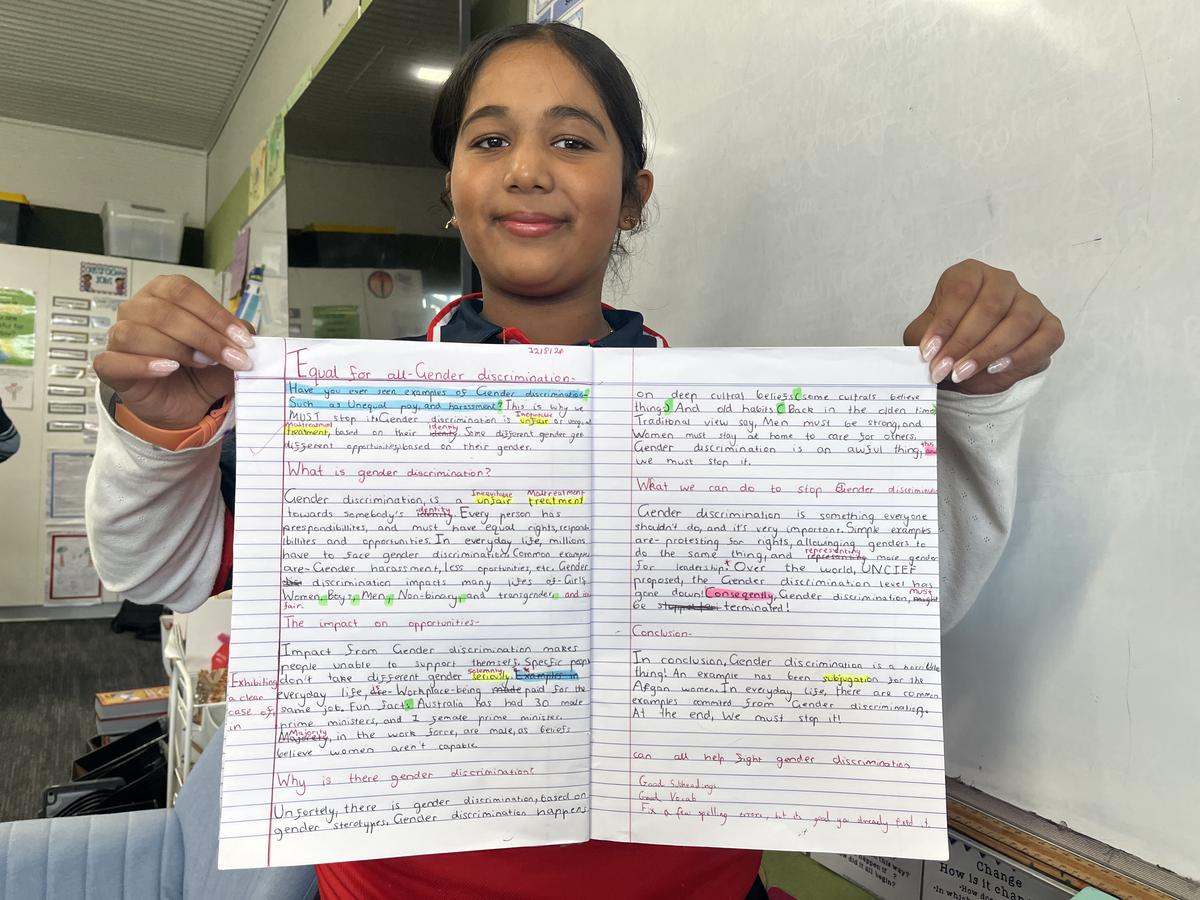 12/8/24
Equal for all-Gender discrimination-
Have you ever seen examples of Gender discrimination-
Such as Unequal pay, and harassment? This is why we
Inevitable
MUST stop it. Gender discrimination is unfair or unequal
Maltreatment identity
treatment, based on their idenity. Some different gender get
different opportunities based on their gender.
What is gender discrimination?
Inevitable Maltreatment
Gender discrimination, is a unfair treatment
identity
towards somebody's idenity. Every person has
responsibillites, and must have equal rights, responsi
bilites and opportunities. In everyday life, millions
have to face gender discrimination. Common examples
are-Gender harassment, less oportunities, etc. Gender
discrimination impacts many lifes of-Girls
Women, Boys, Men, Non-binary, and transgender, and is
fair.
The impact on opportunities-
Impact from Gender discrimination makes
people unable to support themself. Specfic people
solemnly
Exhibiting don't take different gender seriously. Examples in
a clear everyday life, are-Workplace-being made paid for the
case of same job. Fun fact: Australia has had 30 male
in prime ministers, and 1 female prime minister.
Majority
Majorety, in the work force, are male, as beliefs
believe women aren't capable.
Why is there gender discrimination?
Unfortely, there is gender discrimination, based on
gender sterotypes. Gender discrimination happens
on deep cultral beliefs (some cultrals believe
things) And old habits (Back in the olden times
Traditional view say, Men must be strong, and
Women must stay at home to care for others.
Gender discrimination is an awful thing,
we must stop it.
What we can do to stop Gender discrimination
Gender discrimination is something everyone
shouldn't do, and it's very important. Simple examples
are-protesting for rights, allowing genders to
representing
do the same thing, and represanting more gender
for leadership. Over the world, UNCIEF
proposed, the Gender discrimination level has
gone down! Conseqently, Gender discrimination, must
be stopped for terminated!
Conclusion-
In conclusion, Gender discrimination is a horrible
thing! An example has been subjugation for the
Afgan women. In everyday life, there are common
examples commited from Gender discrimination.
At the end, We must stop it!
can all help fight gender discrimination
Good Subheadings
Good Vocab
Fix a few spelling errors, but it's good you already fixed it.
Change
How is it chan